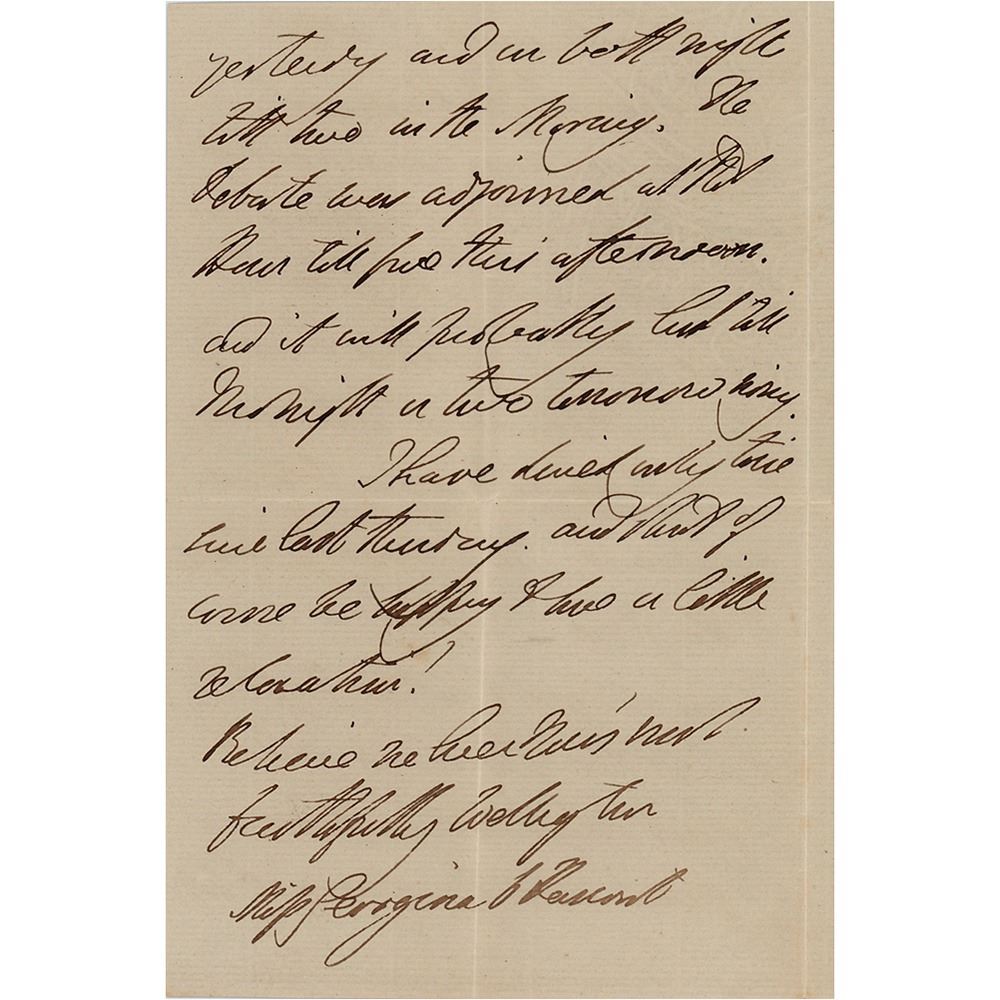 yesterday and on both nights
till two in the Morning. The
debate was adjourned at that
Hour till five this afternoon.
and it will probably last till
Midnight or two tomorrow
I have dined only twice
since last Thursday. and shall of
course be happy to have a little
relaxation!
Believe me Ever Yours most
faithfully Wellington
Miss Georgina